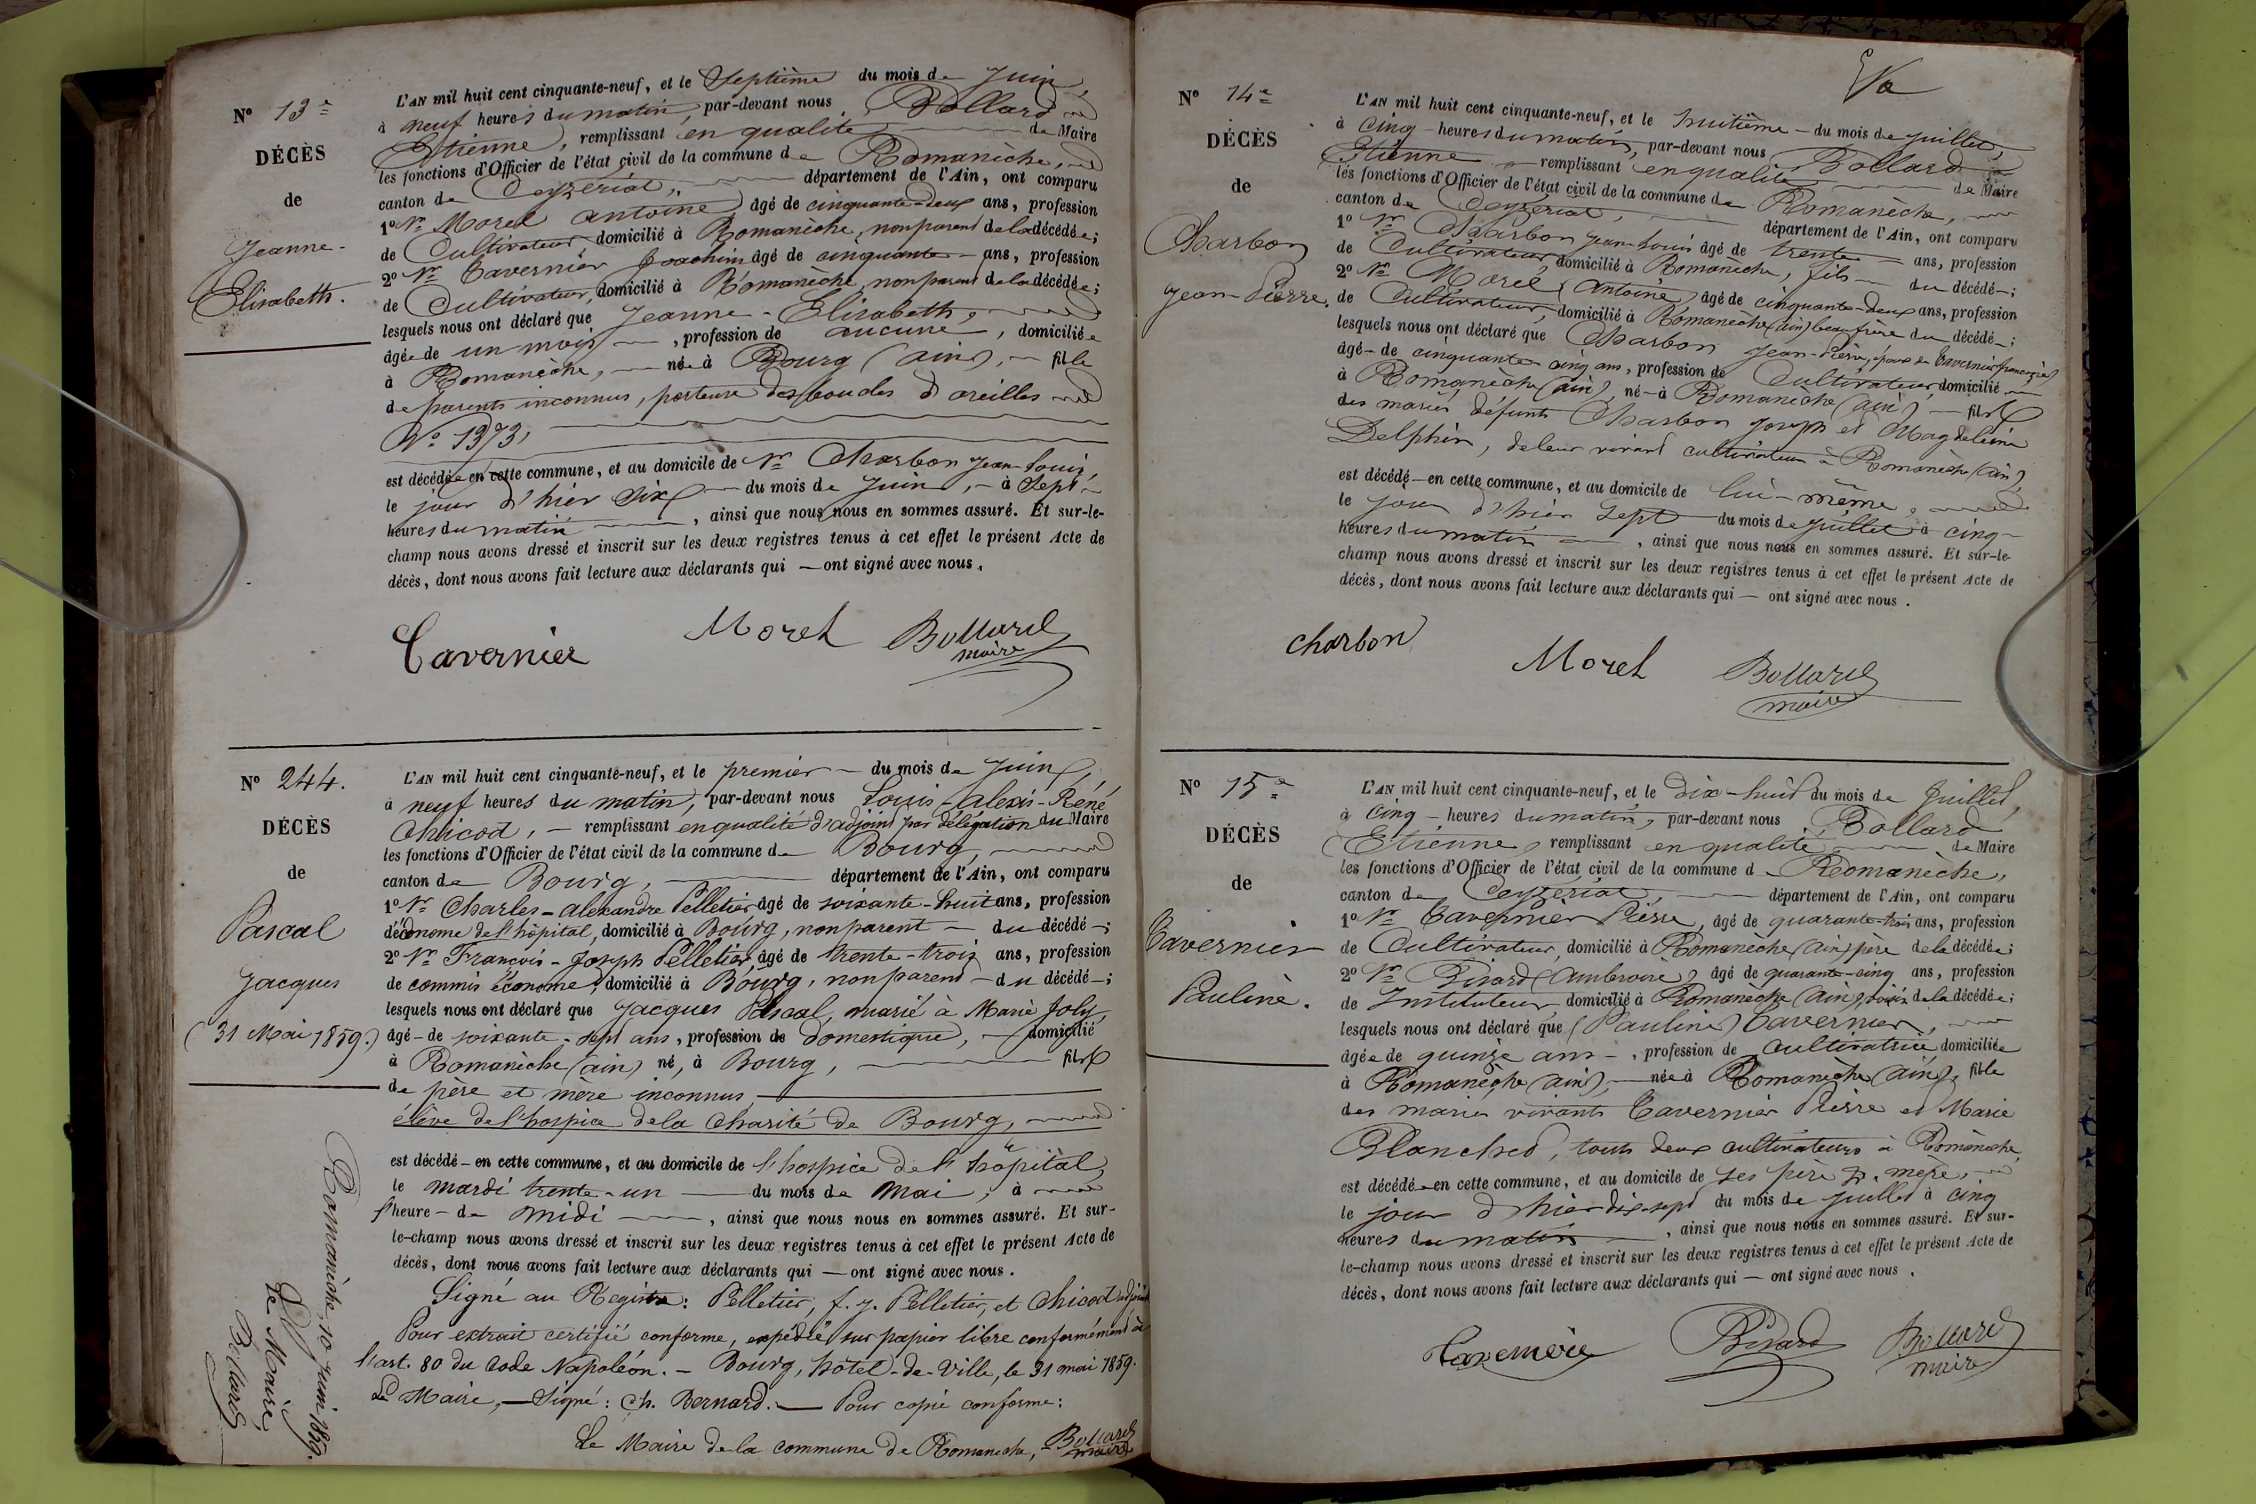 N° 13e
DÉCÈS
de
Jeanne-
Elisabeth.
L'AN mil huit cent cinquante-neuf, et le Septième du mois de Juin,
à neuf heures du matin, par-devant nous Bollard
Etienne, remplissant en qualité de Maire
les fonctions d'Officier de l'état civil de la commune de Romanèche,
canton de Ceyzériat, département de l'Ain, ont comparu
1° Sr Morel Antoine âgé de cinquante-deux ans, profession
de Cultivateur, domicilié à Romanèche, non parent de la décédée;
2° Sr Tavernier Joachim âgé de cinquante ans, profession
de Cultivateur, domicilié à Romanèche, non parent de la décédée;
lesquels nous ont déclaré que Jeanne-Elisabeth,
âgée de un mois, profession de aucune, domiciliée
à Romanèche, née à Bourg (ain), fille
de parents inconnus, porteuse des boucles d'oreilles
N° 1373,
est décédée en cette commune, et au domicile de Sr Charbon Jean-Louis,
le jour d'hier six du mois de Juin, à Sept
heures du matin, ainsi que nous nous en sommes assuré. Et sur-le-
champ nous avons dressé et inscrit sur les deux registres tenus à cet effet le présent Acte de
décès, dont nous avons fait lecture aux déclarants qui — ont signé avec nous.
Tavernier Morel Bollard
maire
N° 244.
DÉCÈS
de
Pascal
Jacques
(31 Mai 1859.)
L'AN mil huit cent cinquante-neuf, et le premier du mois de Juin,
à neuf heures du matin, par-devant nous Louis-Alexis-Réné
Chicod, — remplissant en qualité d'adjoint par délégation du Maire
les fonctions d'Officier de l'état civil de la commune de Bourg,
canton de Bourg, département de l'Ain, ont comparu
1° Sr Charles-Alexandre Pelletier âgé de soixante-huit ans, profession
d'économe de l'hôpital, domicilié à Bourg, non parent du décédé;
2° Sr François-Joseph Pelletier, âgé de trente-trois ans, profession
de commis économe, domicilié à Bourg, non parent du décédé;
lesquels nous ont déclaré que Jacques Pascal, marié à Marie Joly,
âgé de soixante-sept ans, profession de domestique, domicilié
à Romanèche (ain) né, à Bourg, fils
de père et mère inconnus,
élève de l'hospice de la Charité de Bourg,
est décédé en cette commune, et au domicile de l'hospice de l'hôpital,
le mardi trente-un du mois de Mai, à
l'heure de midi, ainsi que nous nous en sommes assuré. Et sur-
le-champ nous avons dressé et inscrit sur les deux registres tenus à cet effet le présent Acte de
décès, dont nous avons fait lecture aux déclarants qui — ont signé avec nous.
Signé au Registre: Pelletier, f. j. Pelletier, et Chicod adjoint
Pour extrait certifié conforme, expédié sur papier libre conformément à
l'art. 80 du Code Napoléon. — Bourg, hôtel-de-Ville, le 31 mai 1859.
Le Maire, — Signé: Ch. Bernard. — Pour copie conforme:
Le Maire de la commune de Romanèche, Bollard
maire
Romanèche, 10 juin 1859.
Le Maire,
Bollard
N° 14e
DÉCÈS
de
Charbon
Jean-Pierre.
L'AN mil huit cent cinquante-neuf, et le huitième du mois de Juillet,
à cinq heures du matin, par-devant nous Bollard
Etienne remplissant en qualité de Maire
les fonctions d'Officier de l'état civil de la commune de Romanèche,
canton de Ceyzériat, département de l'Ain, ont comparu
1° Sr Charbon Jean-Louis âgé de trente ans, profession
de Cultivateur domicilié à Romanèche, fils du décédé;
2° Sr Morel (Antoine) âgé de cinquante-deux ans, profession
de Cultivateur, domicilié à Romanèche (ain) beau frère du décédé;
lesquels nous ont déclaré que Charbon Jean-Pierre, époux de Tavernier françoise
âgé de cinquante-cinq ans, profession de Cultivateur, domicilié
à Romanèche (ain), né à Romanèche (ain) fils
des mariés défunts Charbon Joseph et Magdeleine
Delphin, de leur vivant cultivateurs à Romanèche (ain)
est décédé en cette commune, et au domicile de lui-même,
le jour d'hier sept du mois de juillet à cinq
heures du matin, ainsi que nous nous en sommes assuré. Et sur-le-
champ nous avons dressé et inscrit sur les deux registres tenus à cet effet le présent Acte de
décès, dont nous avons fait lecture aux déclarants qui — ont signé avec nous.
charbon Morel Bollard
maire
N° 15e
DÉCÈS
de
Tavernier
Pauline.
L'AN mil huit cent cinquante-neuf, et le dix-huit du mois de Juillet,
à cinq heures du matin, par-devant nous Bollard
Etienne, remplissant en qualité de Maire
les fonctions d'Officier de l'état civil de la commune de Romanèche,
canton de Ceyzériat, département de l'Ain, ont comparu
1° Sr Tavernier Pierre, âgé de quarante-trois ans, profession
de Cultivateur, domicilié à Romanèche (ain) père de la décédée;
2° Sr Birard (Ambroise) âgé de quarante-cinq ans, profession
de Instituteur, domicilié à Romanèche (ain), voisin de la décédée;
lesquels nous ont déclaré que (Pauline) Tavernier,
âgée de quinze ans, profession de Cultivatrice domiciliée
à Romanèche (ain), née à Romanèche (ain), fille
des mariés vivants Tavernier Pierre et Marie
Blanched, touts deux cultivateurs à Romanèche,
est décédée en cette commune, et au domicile de ses père & mère,
le jour d'hier dix-sept du mois de juillet à cinq
heures du matin, ainsi que nous nous en sommes assuré. Et sur-
le-champ nous avons dressé et inscrit sur les deux registres tenus à cet effet le présent Acte de
décès, dont nous avons fait lecture aux déclarants qui — ont signé avec nous.
Tavernier Birard Bollard
maire